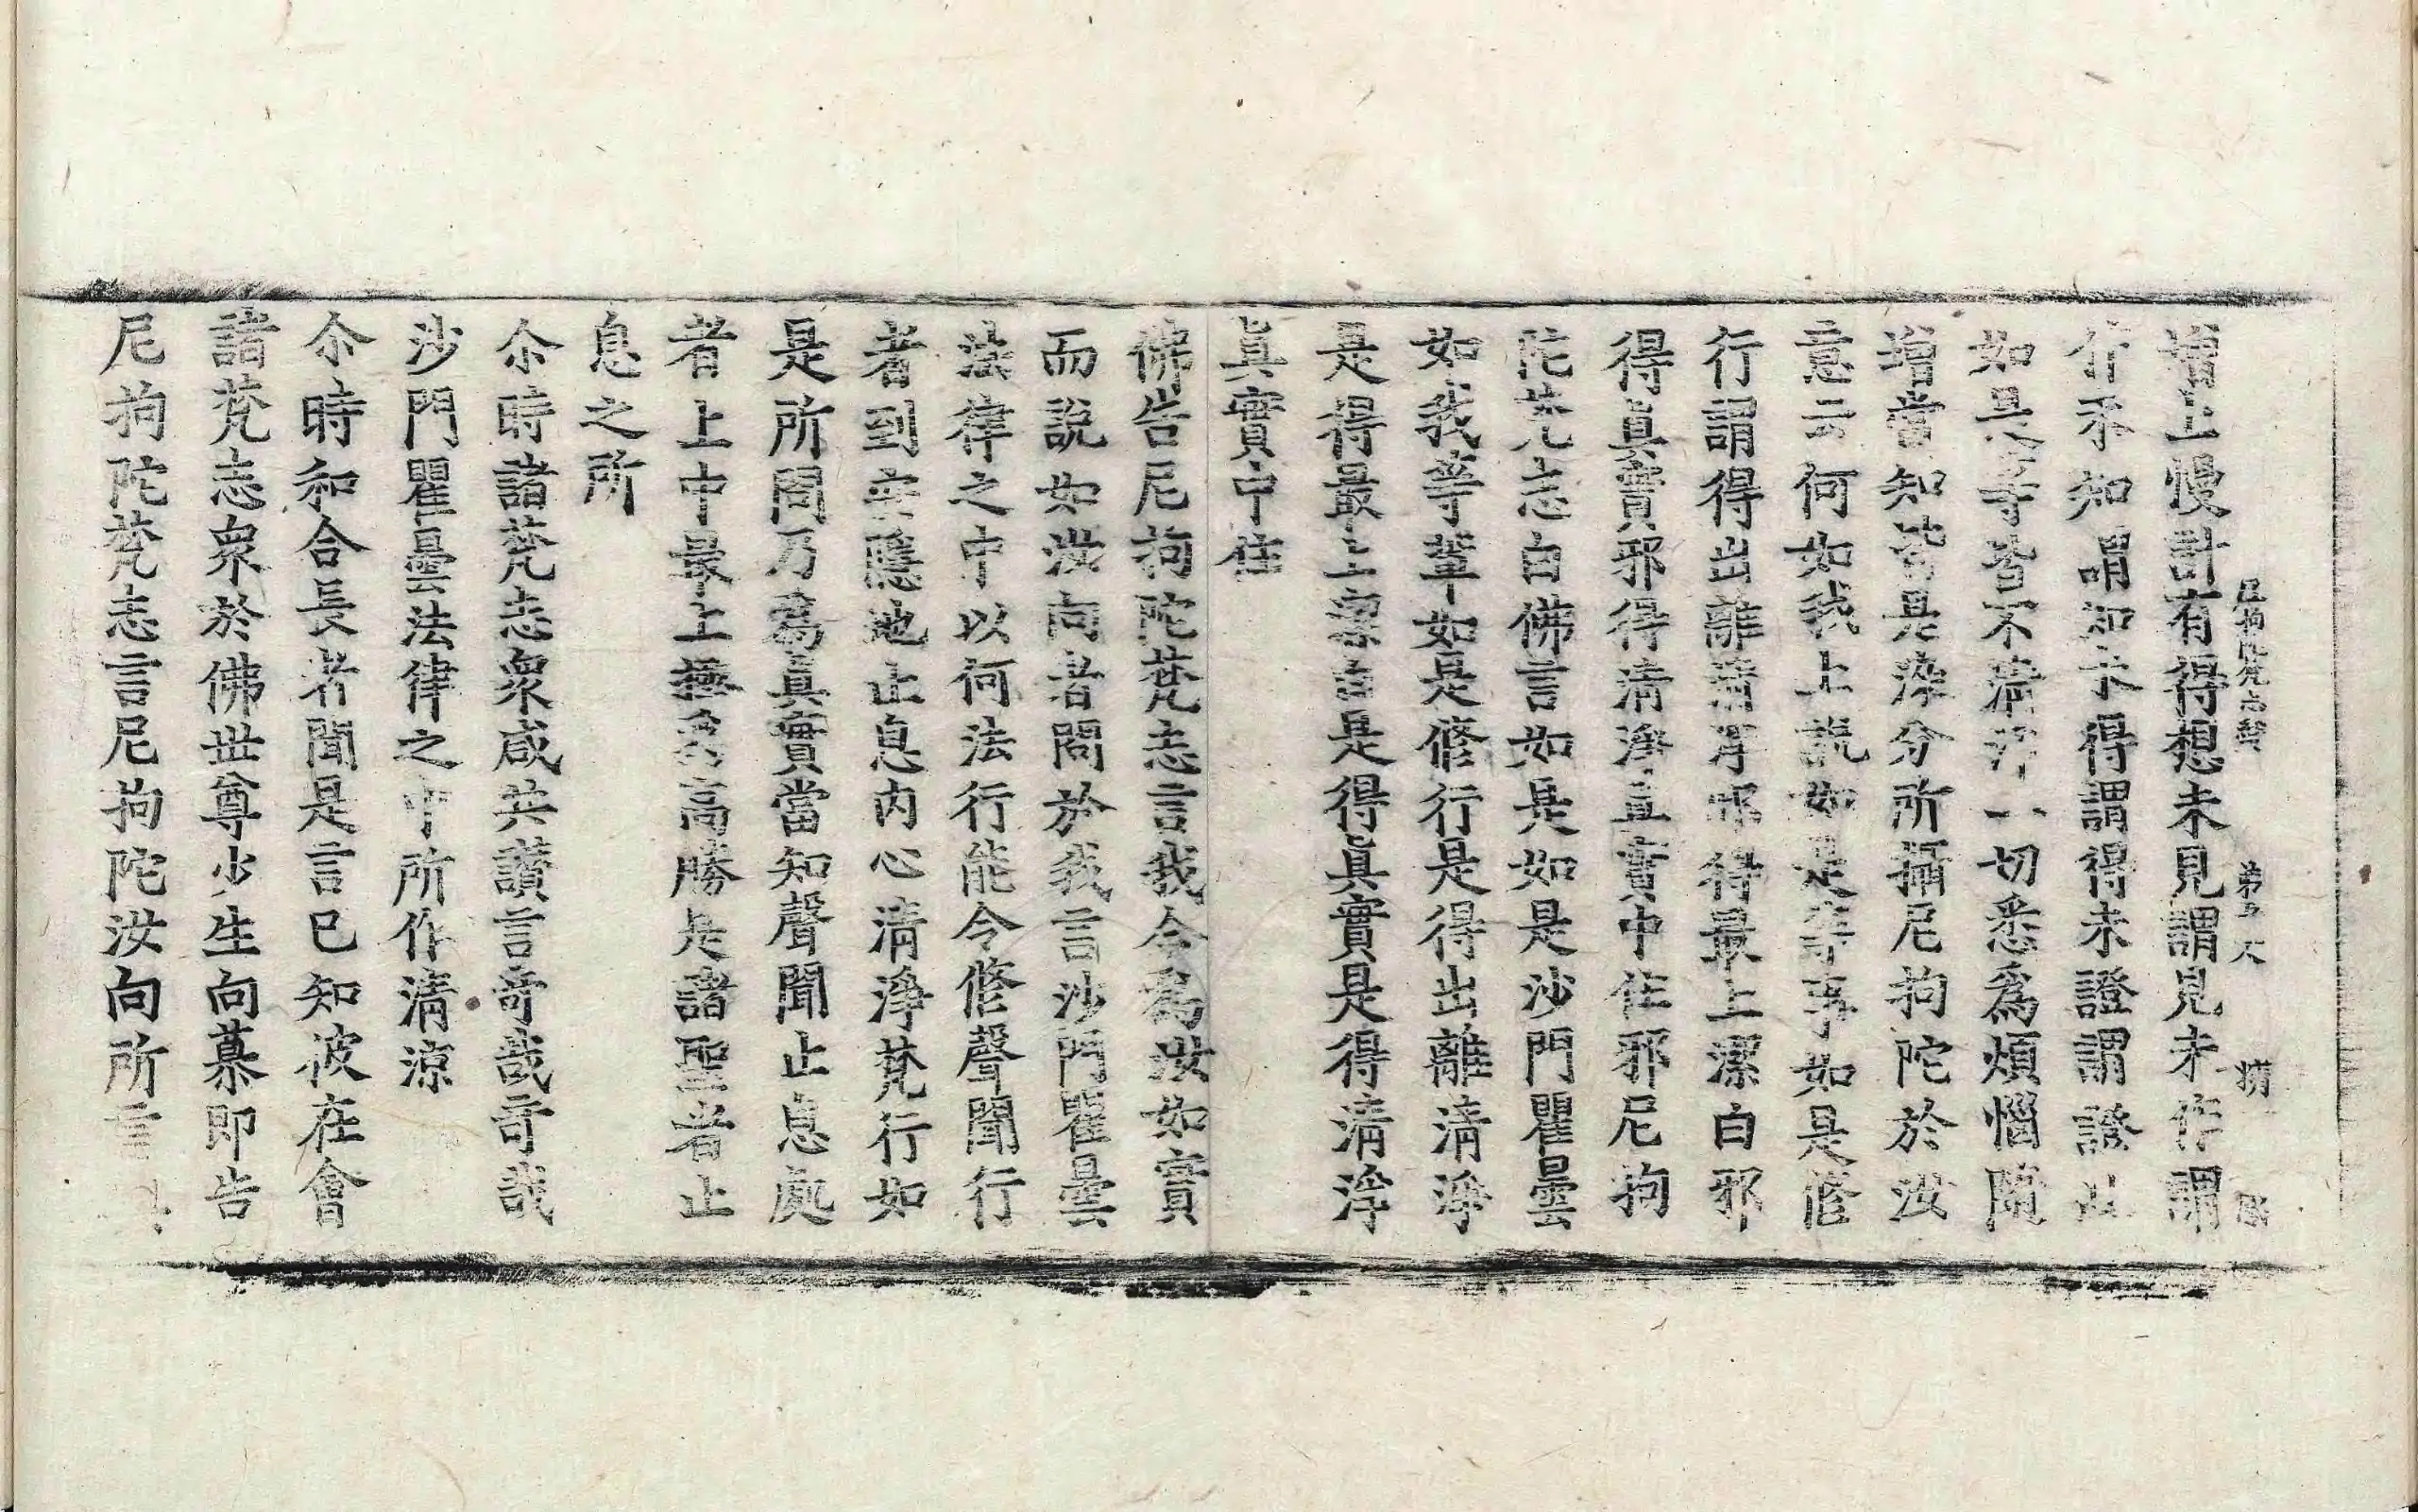 尼拘陀梵志經 第 大 精
增上慢計有得想未見謂見未作謂
作不知謂知未得謂得未證謂證以
如是等皆不清淨一切悉爲煩惱隨
增當知皆是染分所攝尼拘陀於汝
意云何如我上說如是等事如是修
行謂得出離清淨邪得最上潔白邪
得眞實邪得清淨眞實中住邪尼拘
陀梵志白佛言如是如是沙門瞿曇
如我等輩如是修行是得出離清淨
是得最上潔白是得眞實是得清淨
眞實中住
佛告尼拘陀梵志言我今爲汝如實
而說如汝向者問於我言沙門瞿曇
法律之中以何法行能令修聲聞行
者到安隱地止息內心清淨梵行如
是所問乃爲眞實當知聲聞止息處
者上中最上極爲高勝是諸聖者止
息之所
尒時諸梵志衆咸共讚言竒哉竒哉
沙門瞿曇法律之中所作清涼
尒時和合長者聞是言已知彼在會
諸梵志衆於佛世尊少生向慕即告
尼拘陀梵志言尼拘陀汝向所言